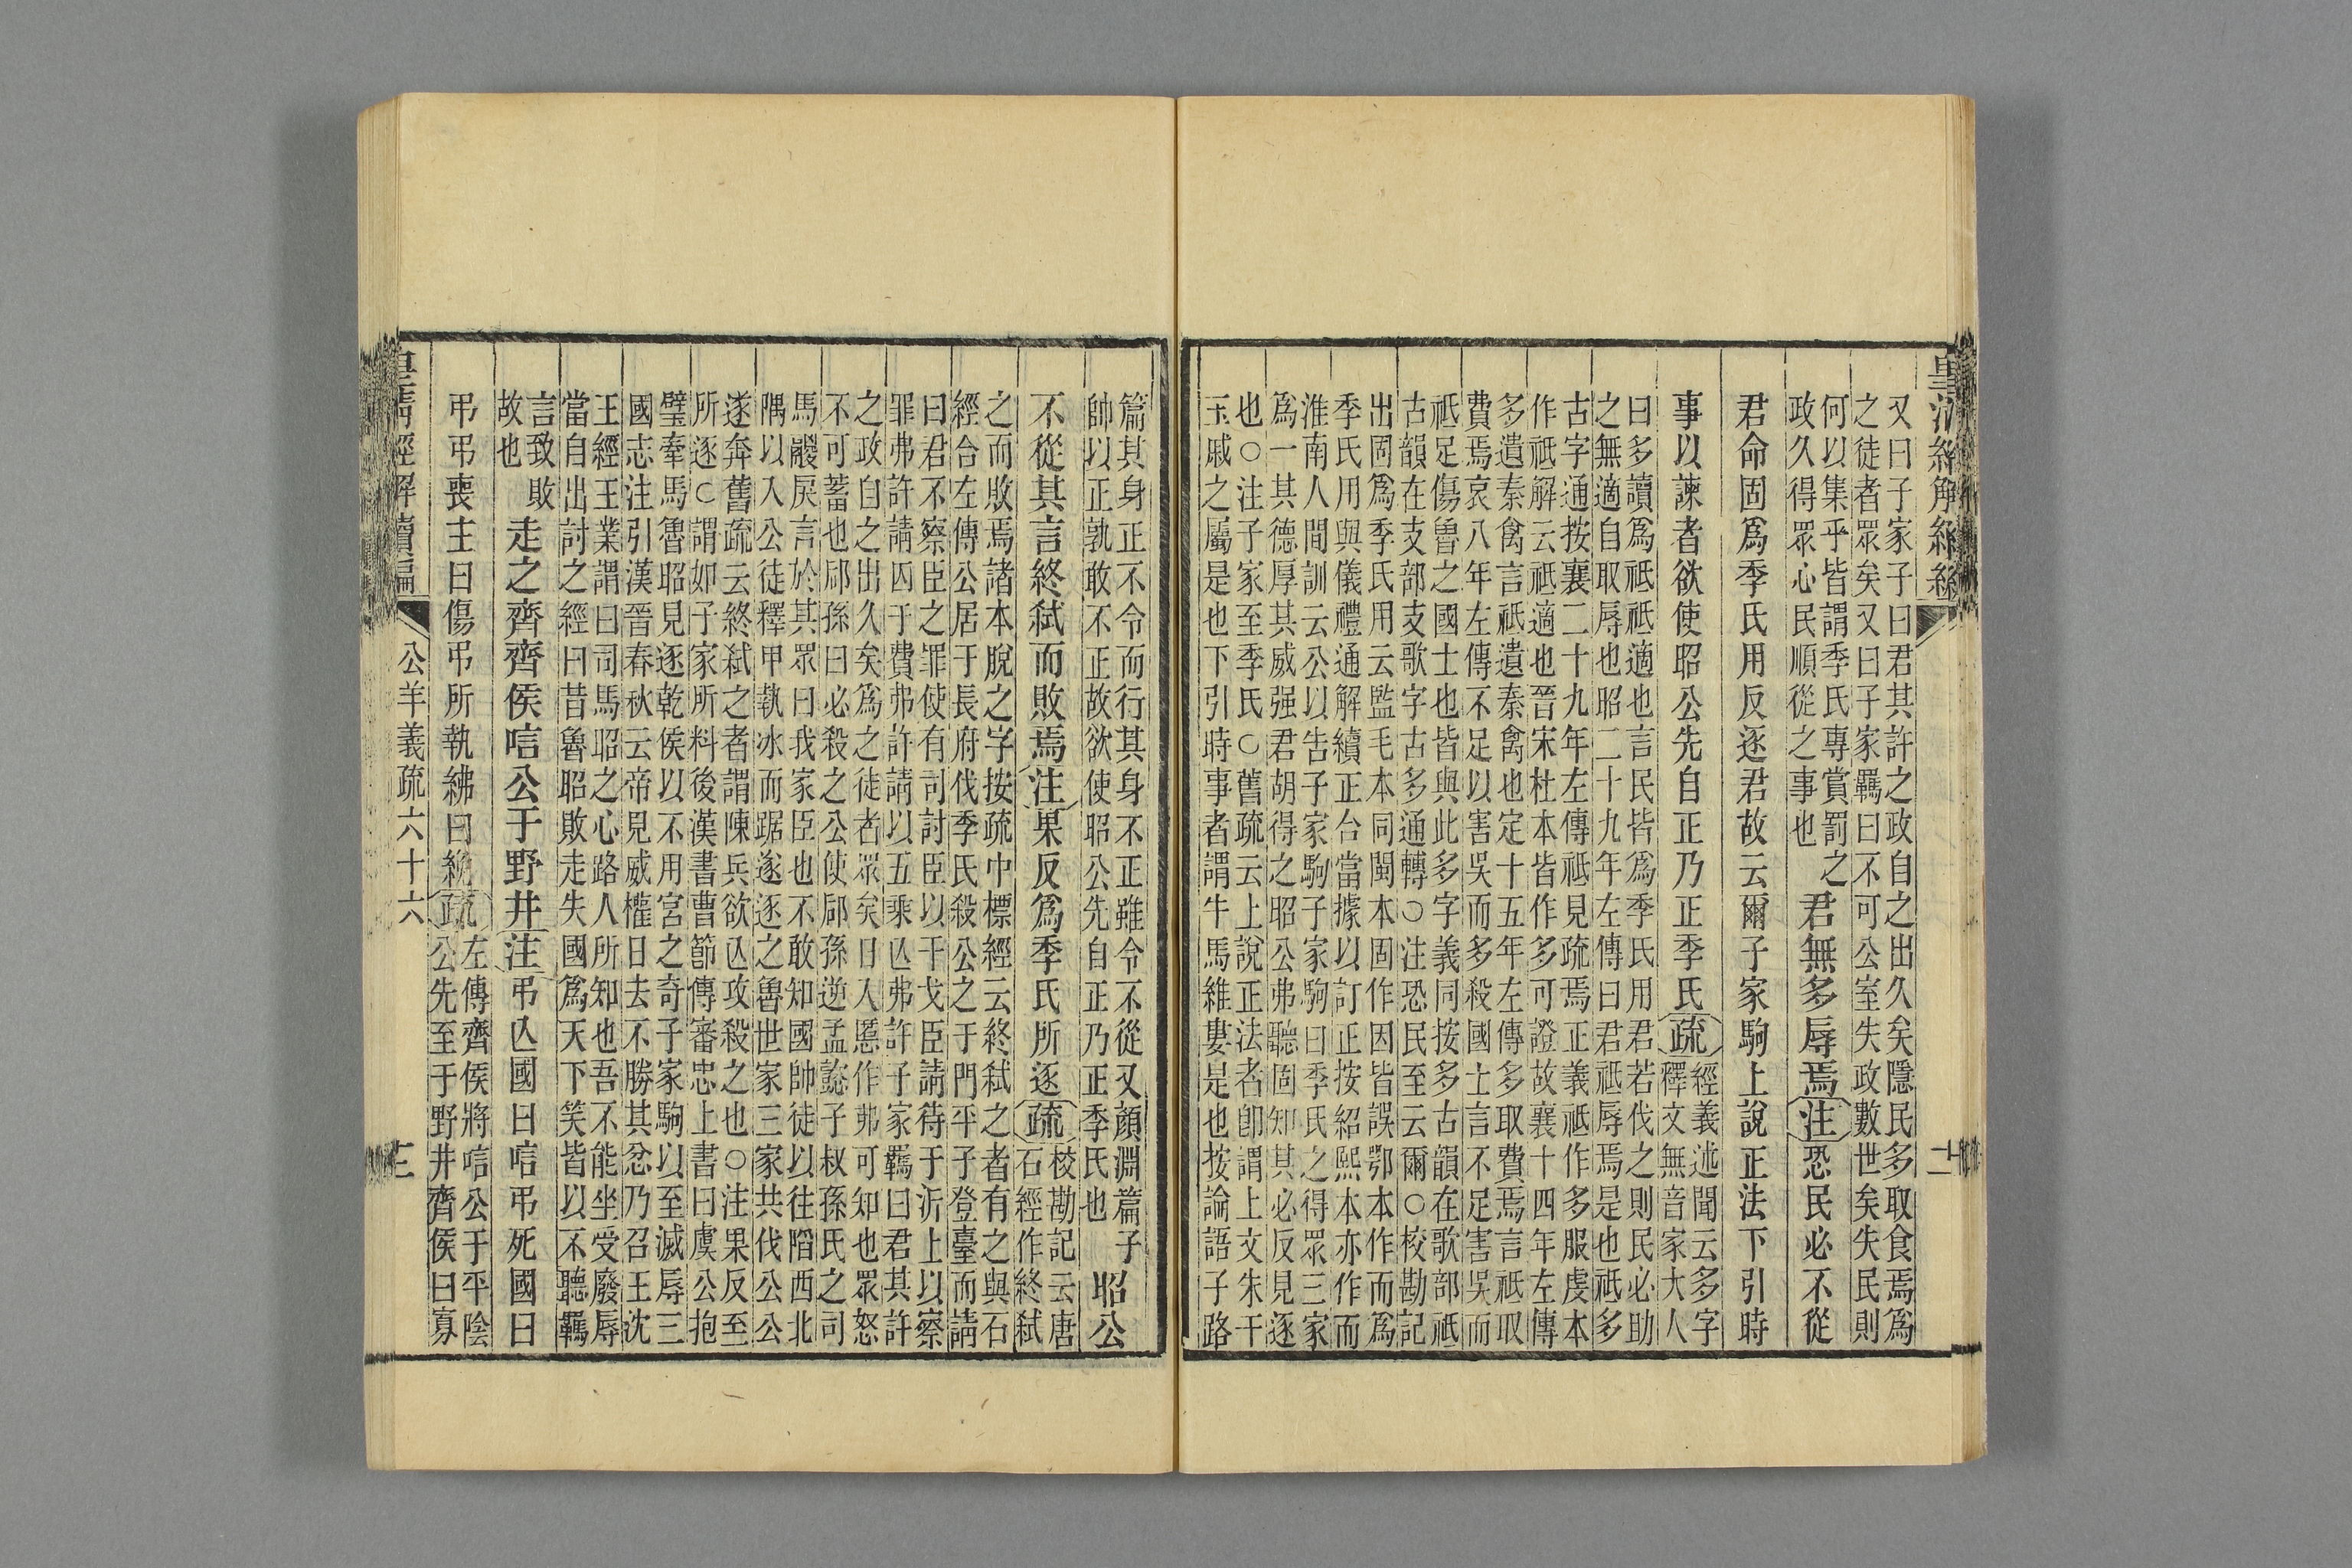 又曰子家子曰君其許之政自之出久矣隱民多取食焉爲
之徒者眾矣又曰子家羈曰不可公室失政數世矣失民則
何以集乎皆謂季氏專賞罰之
政久得眾心民順從之事也
君無多辱焉注恐民必不從
君命固爲季氏用反逐君故云爾子家駒上說正法下引時
事以諫者欲使昭公先自正乃正季氏疏
經義述聞云多字
釋文無音家大人
曰多讀爲祗祗適也言民皆爲季氏用君若伐之則民必助
之無適自取辱也昭二十九年左傳曰君祗辱焉是也祗多
古字通按襄二十九年左傳祗見疏焉正義祗作多服虔本
作祗解云祗適也晉宋杜本皆作多可證故襄十四年左傳
多遺秦禽言祗遺秦禽也定十五年左傳多取費焉言祗取
費焉哀八年左傳不足以害吳而多殺國士言不足害吳而
祗足傷魯之國士也皆與此多字義同按多古韻在歌部祗
古韻在支部支歌字古多通轉○注恐民至云爾○校勘記
出固爲季氏用云監毛本同閩本固作因皆誤鄂本作而爲
季氏用與儀禮通解續正合當據以訂正按紹熙本亦作而
淮南人間訓云公以告子家駒子家駒曰季氏之得眾三家
爲一其德厚其威强君胡得之昭公弗聽固知其必反見逐
也○注子家至季氏○舊疏云上說正法者卽謂上文朱干
玉戚之屬是也下引時事者謂牛馬維婁是也按論語子路
篇其身正不令而行其身不正雖令不從又顏淵篇子
帥以正孰敢不正故欲使昭公先自正乃正季氏也
昭公
不從其言終弒而敗焉注果反爲季氏所逐疏
校勘記云唐
石經作終弒
之而敗焉諸本脫之字按疏中標經云終弒之者有之與石
經合左傳公居于長府伐季氏殺公之于門平子登臺而請
曰君不察臣之罪使有司討臣以干戈臣請待于沂上以察
罪弗許請囚于費弗許請以五乘亾弗許子家羈曰君其許
之政自之出久矣爲之徒者眾矣日入慝作弗可知也眾怒
不可蓄也郈孫曰必殺之公使郈孫逆孟懿子叔孫氏之司
馬鬷戾言於其眾曰我家臣也不敢知國帥徒以往陷西北
隅以入公徒釋甲執冰而踞遂逐之魯世家三家共伐公公
遂奔舊疏云終弒之者謂陳兵欲亾攻殺之也○注果反至
所逐○謂如子家所料後漢書曹節傳審忠上書曰虞公抱
璧牽馬魯昭見逐乾侯以不用宮之奇子家駒以至滅辱三
國志注引漢晉春秋云帝見威權日去不勝其忿乃召王沈
王經王業謂曰司馬昭之心路人所知也吾不能坐受廢辱
當自出討之經曰昔魯昭敗走失國爲天下笑皆以不聽羈
言致敗
故也
走之齊齊侯唁公于野井注弔亾國曰唁弔死國曰
弔弔喪主曰傷弔所執紼曰繐疏
左傳齊侯將唁公于平陰
公先至于野井齊侯曰寡
公羊義疏六十六